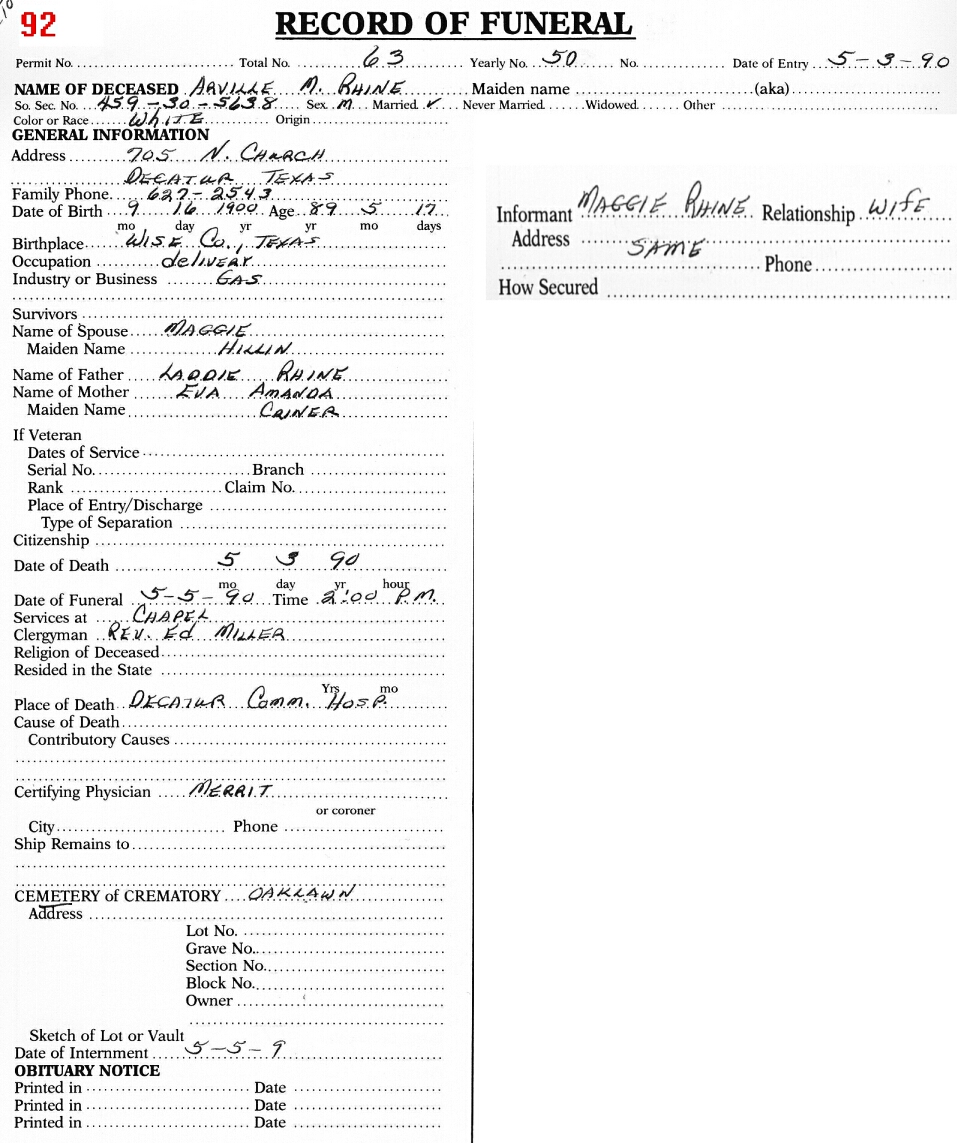 92
RECORD OF FUNERAL
Permit No. Total No. 63 Yearly No. 50 No. Date of Entry 5-3-90
NAME OF DECEASED ARVILLE M. RHINE Maiden name (aka)
So. Sec. No. 459-30-5638 Sex M Married ✓ Never Married Widowed Other
Color or Race WHITE Origin
GENERAL INFORMATION
Address 705 N. CHURCH
DECATUR TEXAS
Family Phone 627-2543
Date of Birth 9 16 1900 Age 89 5 17
mo day yr yr mo days
Birthplace WISE Co., TEXAS
Occupation delivery
Industry or Business GAS
Survivors
Name of Spouse MAGGIE
Maiden Name HILLIN
Name of Father LADDIE RHINE
Name of Mother EVA AMANDA
Maiden Name CRINER
If Veteran
Dates of Service
Serial No. Branch
Rank Claim No.
Place of Entry/Discharge
Type of Separation
Citizenship
Date of Death 5 3 90
mo day yr hour
Date of Funeral 5-5-90 Time 2:00 P.M.
Services at CHAPEL
Clergyman REV. Ed MILLER
Religion of Deceased
Resided in the State
Yrs mo
Place of Death DECATUR Comm. HOSP.
Cause of Death
Contributory Causes
Certifying Physician MERRIT
or coroner
City Phone
Ship Remains to
CEMETERY of CREMATORY OAKLAWN
Address
Lot No.
Grave No.
Section No.
Block No.
Owner
Sketch of Lot or Vault
Date of Internment 5-5-9
OBITUARY NOTICE
Printed in Date
Printed in Date
Printed in Date
Informant MAGGIE RHINE Relationship WIFE
Address SAME
Phone
How Secured